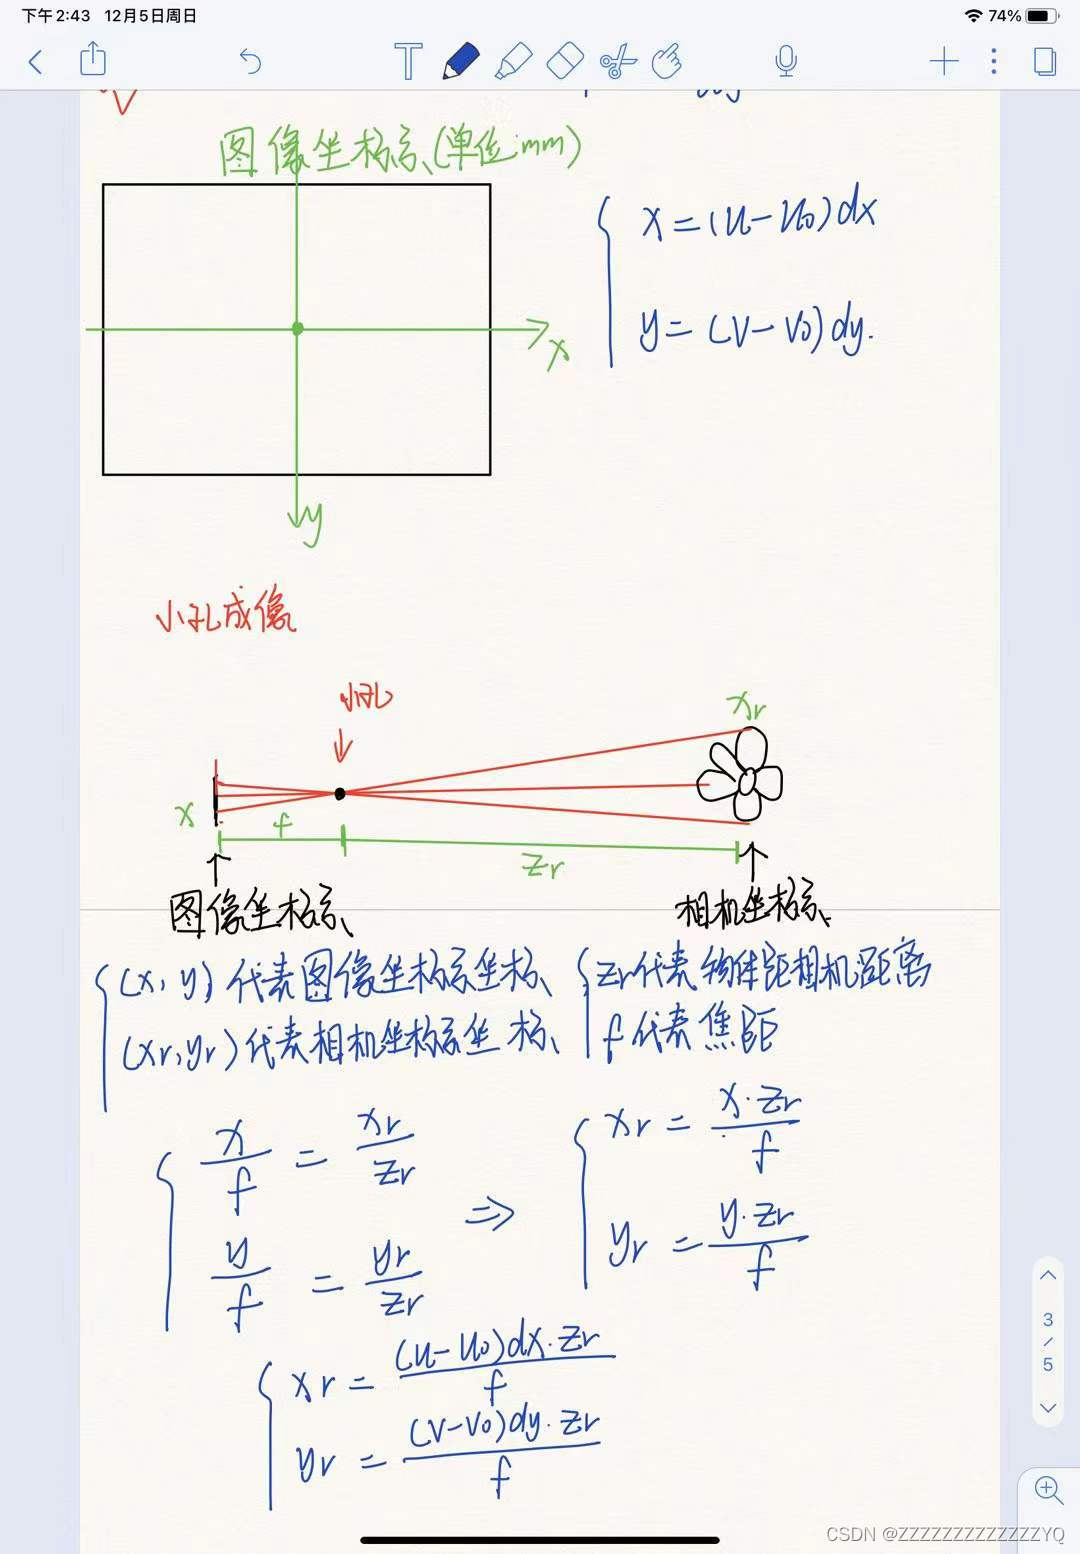 下午2:43 12月5日周日
74%
图像坐标系(单位:mm)
x=(u-u₀)dx
y=(v-v₀)dy.
x
y
小孔成像
小孔
xr
x
f
zr
图像坐标系
相机坐标系
(x,y)代表图像坐标系坐标
(xr,yr)代表相机坐标系坐标
zr代表物体距相机距离
f代表焦距
x/f = xr/zr
y/f = yr/zr
⇒
xr = x·zr/f
yr = y·zr/f
xr = (u-u₀)dx·zr/f
yr = (v-v₀)dy·zr/f
3/5
CSDN @ZZZZZZZZZZZZZYQ